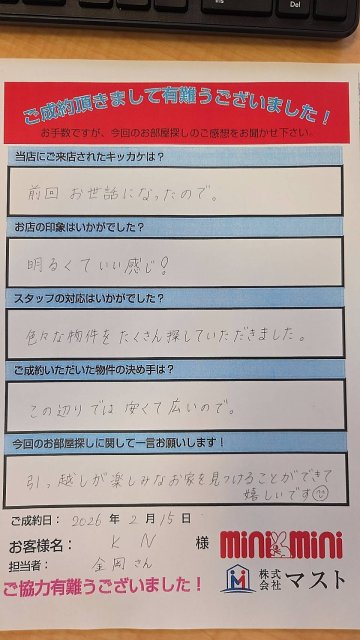 ご成約頂きまして有難うございました！
お手数ですが、今回のお部屋探しのご感想をお聞かせ下さい。
当店にご来店されたキッカケは？
前回 お世話になったので。
お店の印象はいかがでした？
明るくていい感じ！
スタッフの対応はいかがでした？
色々な物件をたくさん探していただきました。
ご成約いただいた物件の決め手は？
この辺りでは 安くて広いので。
今回のお部屋探しに関して一言お願いします！
引っ越しが楽しみなお家を見つけることができて
嬉しいです
ご成約日： 2026 年 2 月 15 日
お客様名： K N 様
担当者： 金岡さん
mini mini
株式会社 マスト
ご協力有難うございました！